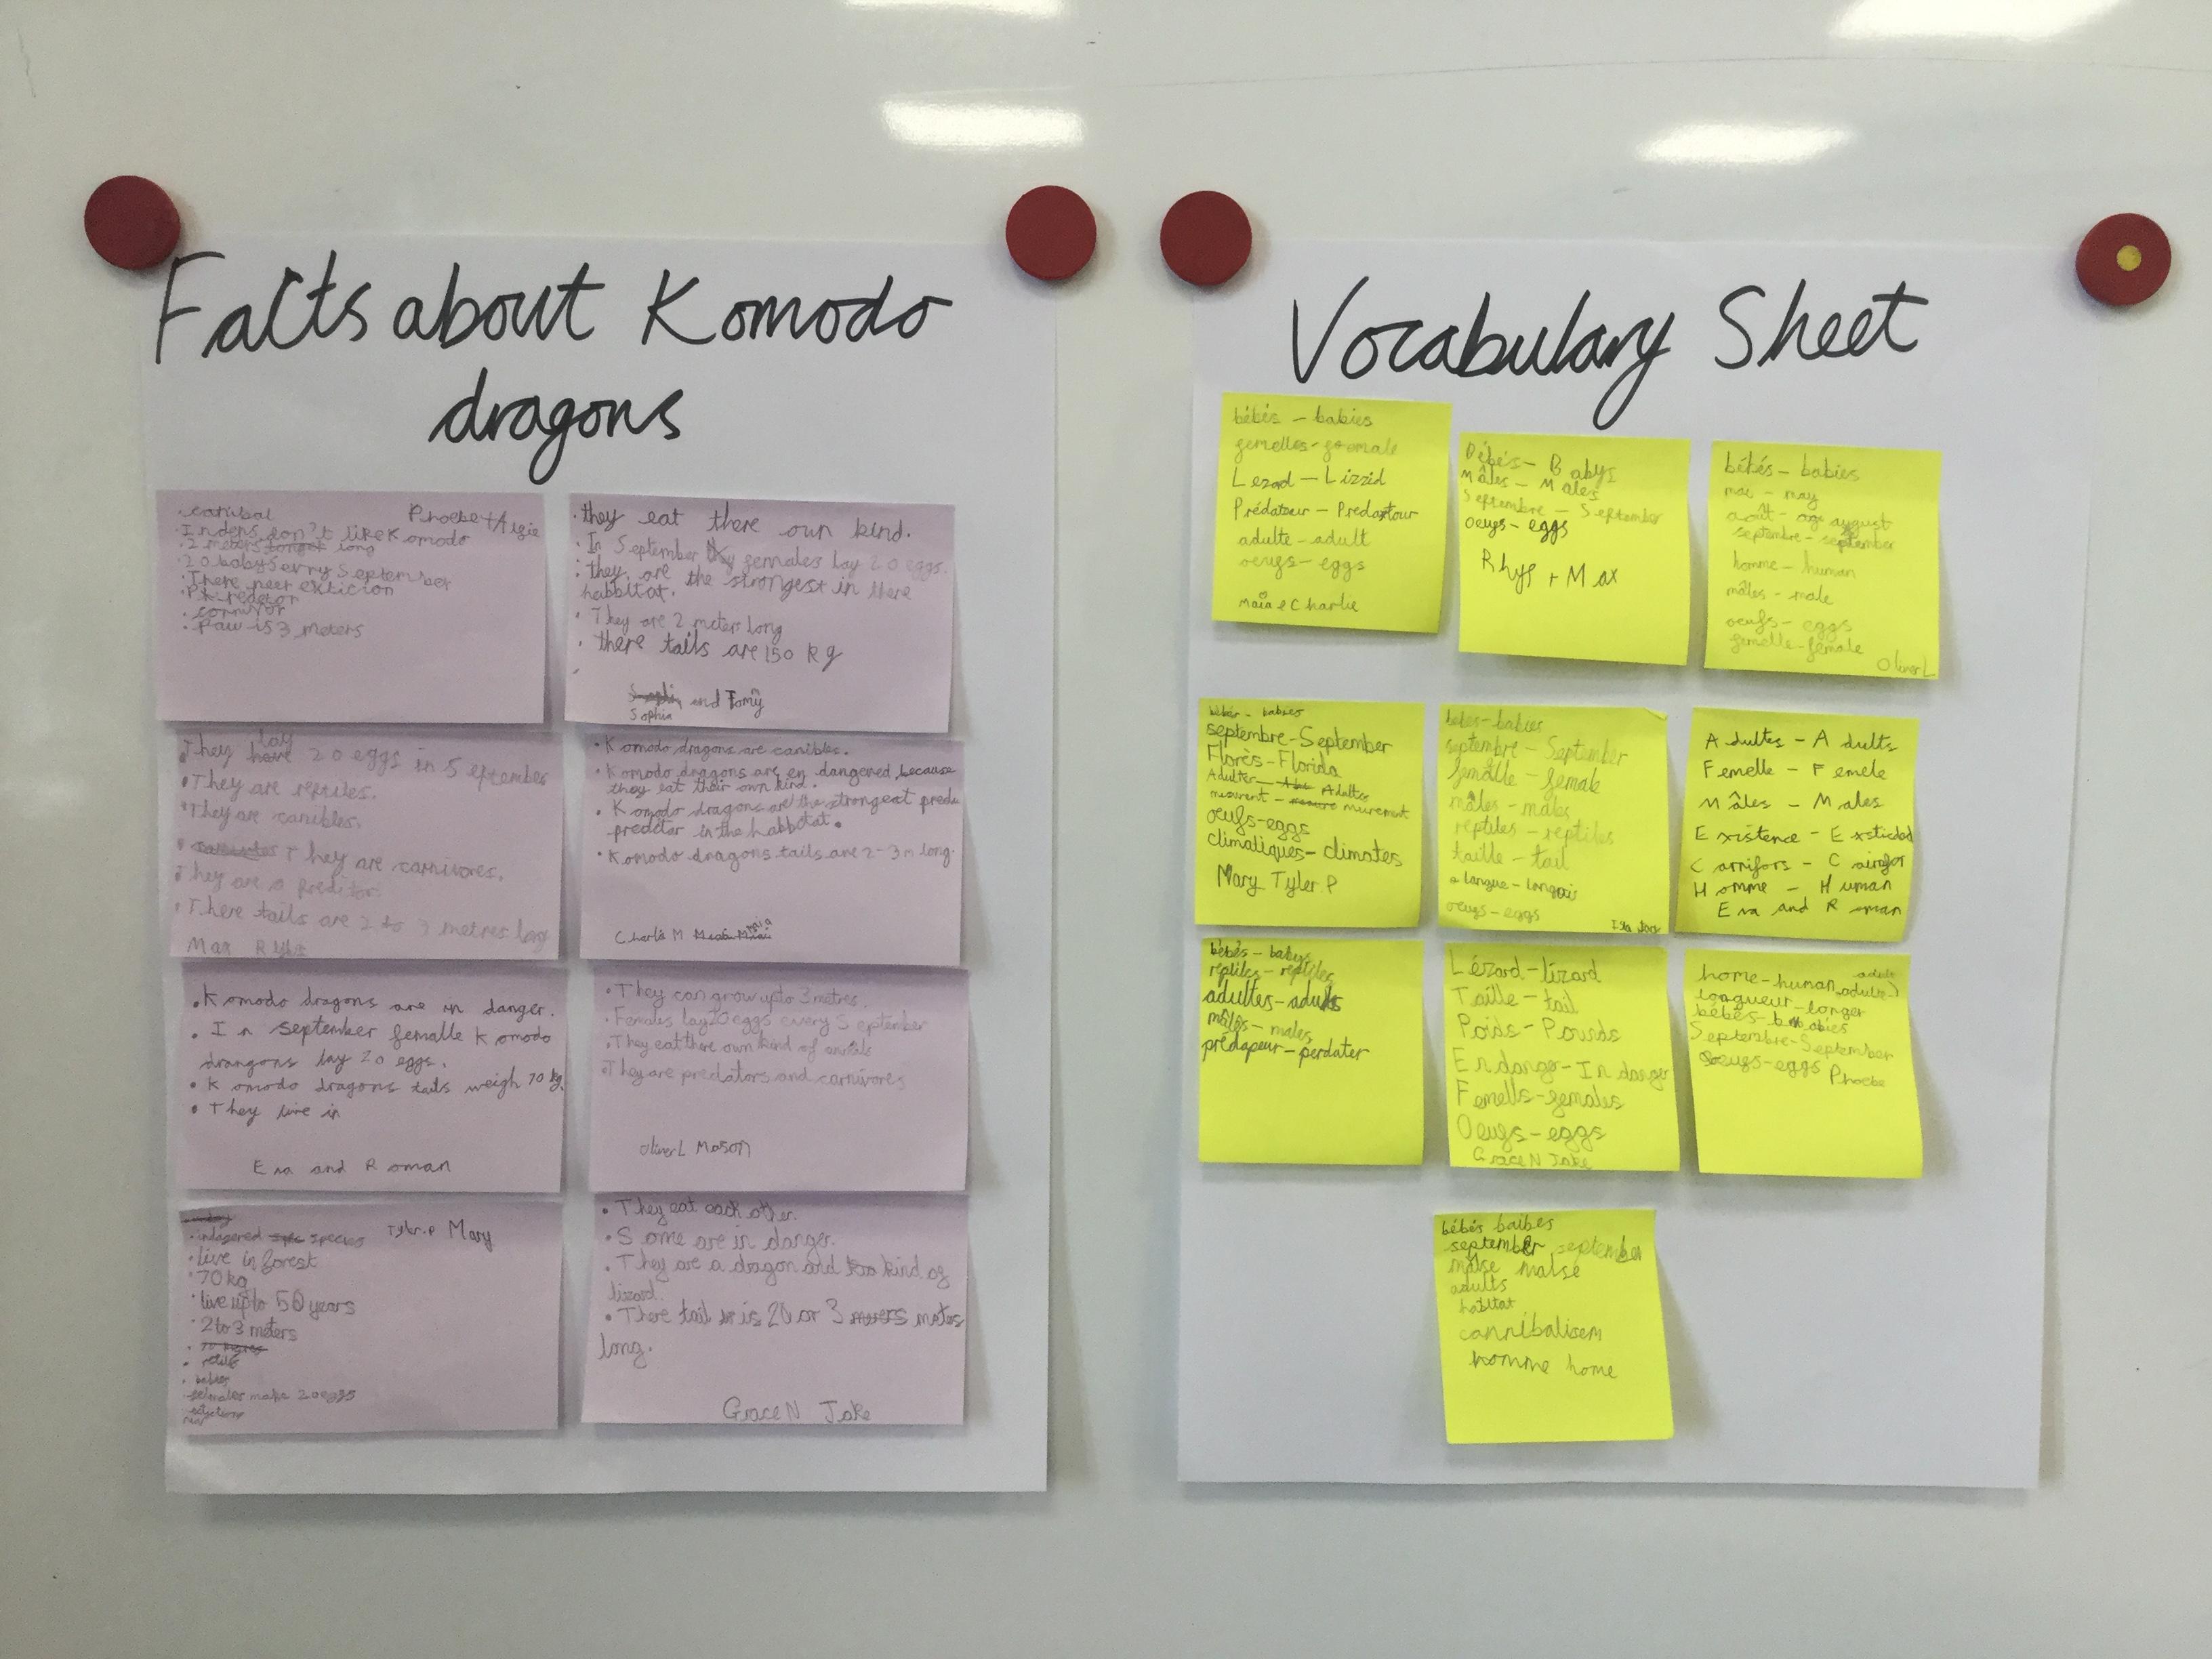 Facts about Komodo
dragons
Phoebe + Algie
· canibal
· Indens don't like Komodo
· 2 meters long
· 20 babys evry September
· There neer exticion
· carnivor
· paw is 3 meters
· they eat there own kind.
· In September females lay 20 eggs.
· they are the strongest in there
habbitat.
· They are 2 meter long
· there tails are 150 kg
Sophia and Tomy
They lay 20 eggs in September
· They are reptiles.
· They are canibles.
· They are carnivores.
They are a preditor.
· There tails are 2 to 3 metres long
Max Rhys
· Komodo dragons are canibles.
· Komodo dragons are en dangered because
they eat their own kind.
· Komodo dragons are the strongest predu
preditar in the habbitat.
· Komodo dragons tails are 2-3m long.
Charlie M Maia
· Komodo dragons are in danger.
· In september femalle Komodo
drangons lay 20 eggs.
· Komodo dragons tails weigh 70 kg.
· They live in
Eva and Roman
· They can grow upto 3 metres.
· Females lay 20 eggs every September
· They eat there own kind of animals
· They are predators and carnivores
Oliver L Mason
Tyler.P Mary
· indagered species
· live in forest
· 70 kg
· live upto 50 years
· 2 to 3 meters
· babies
· females make 20 eggs
· They eat each other.
· Some are in danger.
· They are a dragon and kind of
lizard.
· There tail is 20 or 3 metes
long.
Grace N Jake
Vocabulary Sheet
bébés – babies
femelles – foomale
Lezard – Lizzid
Prédateur – Predartour
adulte – adult
oeufs – eggs
Maia & Charlie
Bébés – Babys
Mâles – Males
Septembre – September
oeufs – eggs
Rhys + Max
bébés – babies
mai – may
août – august
septembre – september
homme – human
mâles – male
oeufs – eggs
femelle – female
Oliver L
bébés – babies
septembre – September
Florès – Florida
Adultes – Adults
mesurent – murement
oeufs – eggs
climatiques – climates
Mary Tyler P
bébés – babies
septembre – September
femalle – female
mâles – males
reptiles – reptiles
taille – tail
oeufs – eggs
Adultes – Adults
Femelle – Femele
Mâles – Males
Existence – Exsticted
Carnifors – Cairnfor
Homme – Human
Eva and Roman
bébés – babys
reptiles – reptiles
adultes – adults
mâles – males
prédapeur – perdater
Lézard – lizard
Taille – tail
Poids – Pounds
En danger – In danger
Femells – females
Oeufs – eggs
Grace N Jake
home – human adult
longueur – longer
bébés – babies
Septembre – September
oeufs – eggs Phoebe
bébés baibes
september september
malse malse
adults
habitat
cannibalisem
homme home